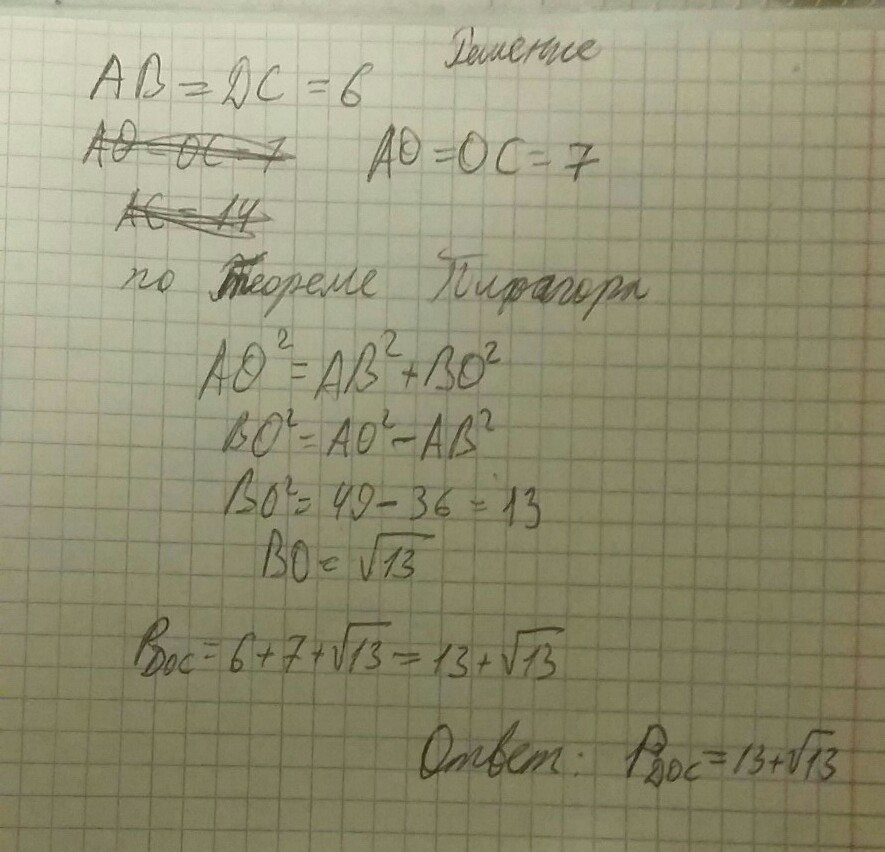 Решение
AB = DC = 6
AO = OC = 7 AO = OC = 7
AC = 14
по Теореме Пифагора
AO² = AB² + BO²
BO² = AO² - AB²
BO² = 49 - 36 = 13
BO = √13
P_DOC = 6 + 7 + √13 = 13 + √13
Ответ: P_DOC = 13 + √13